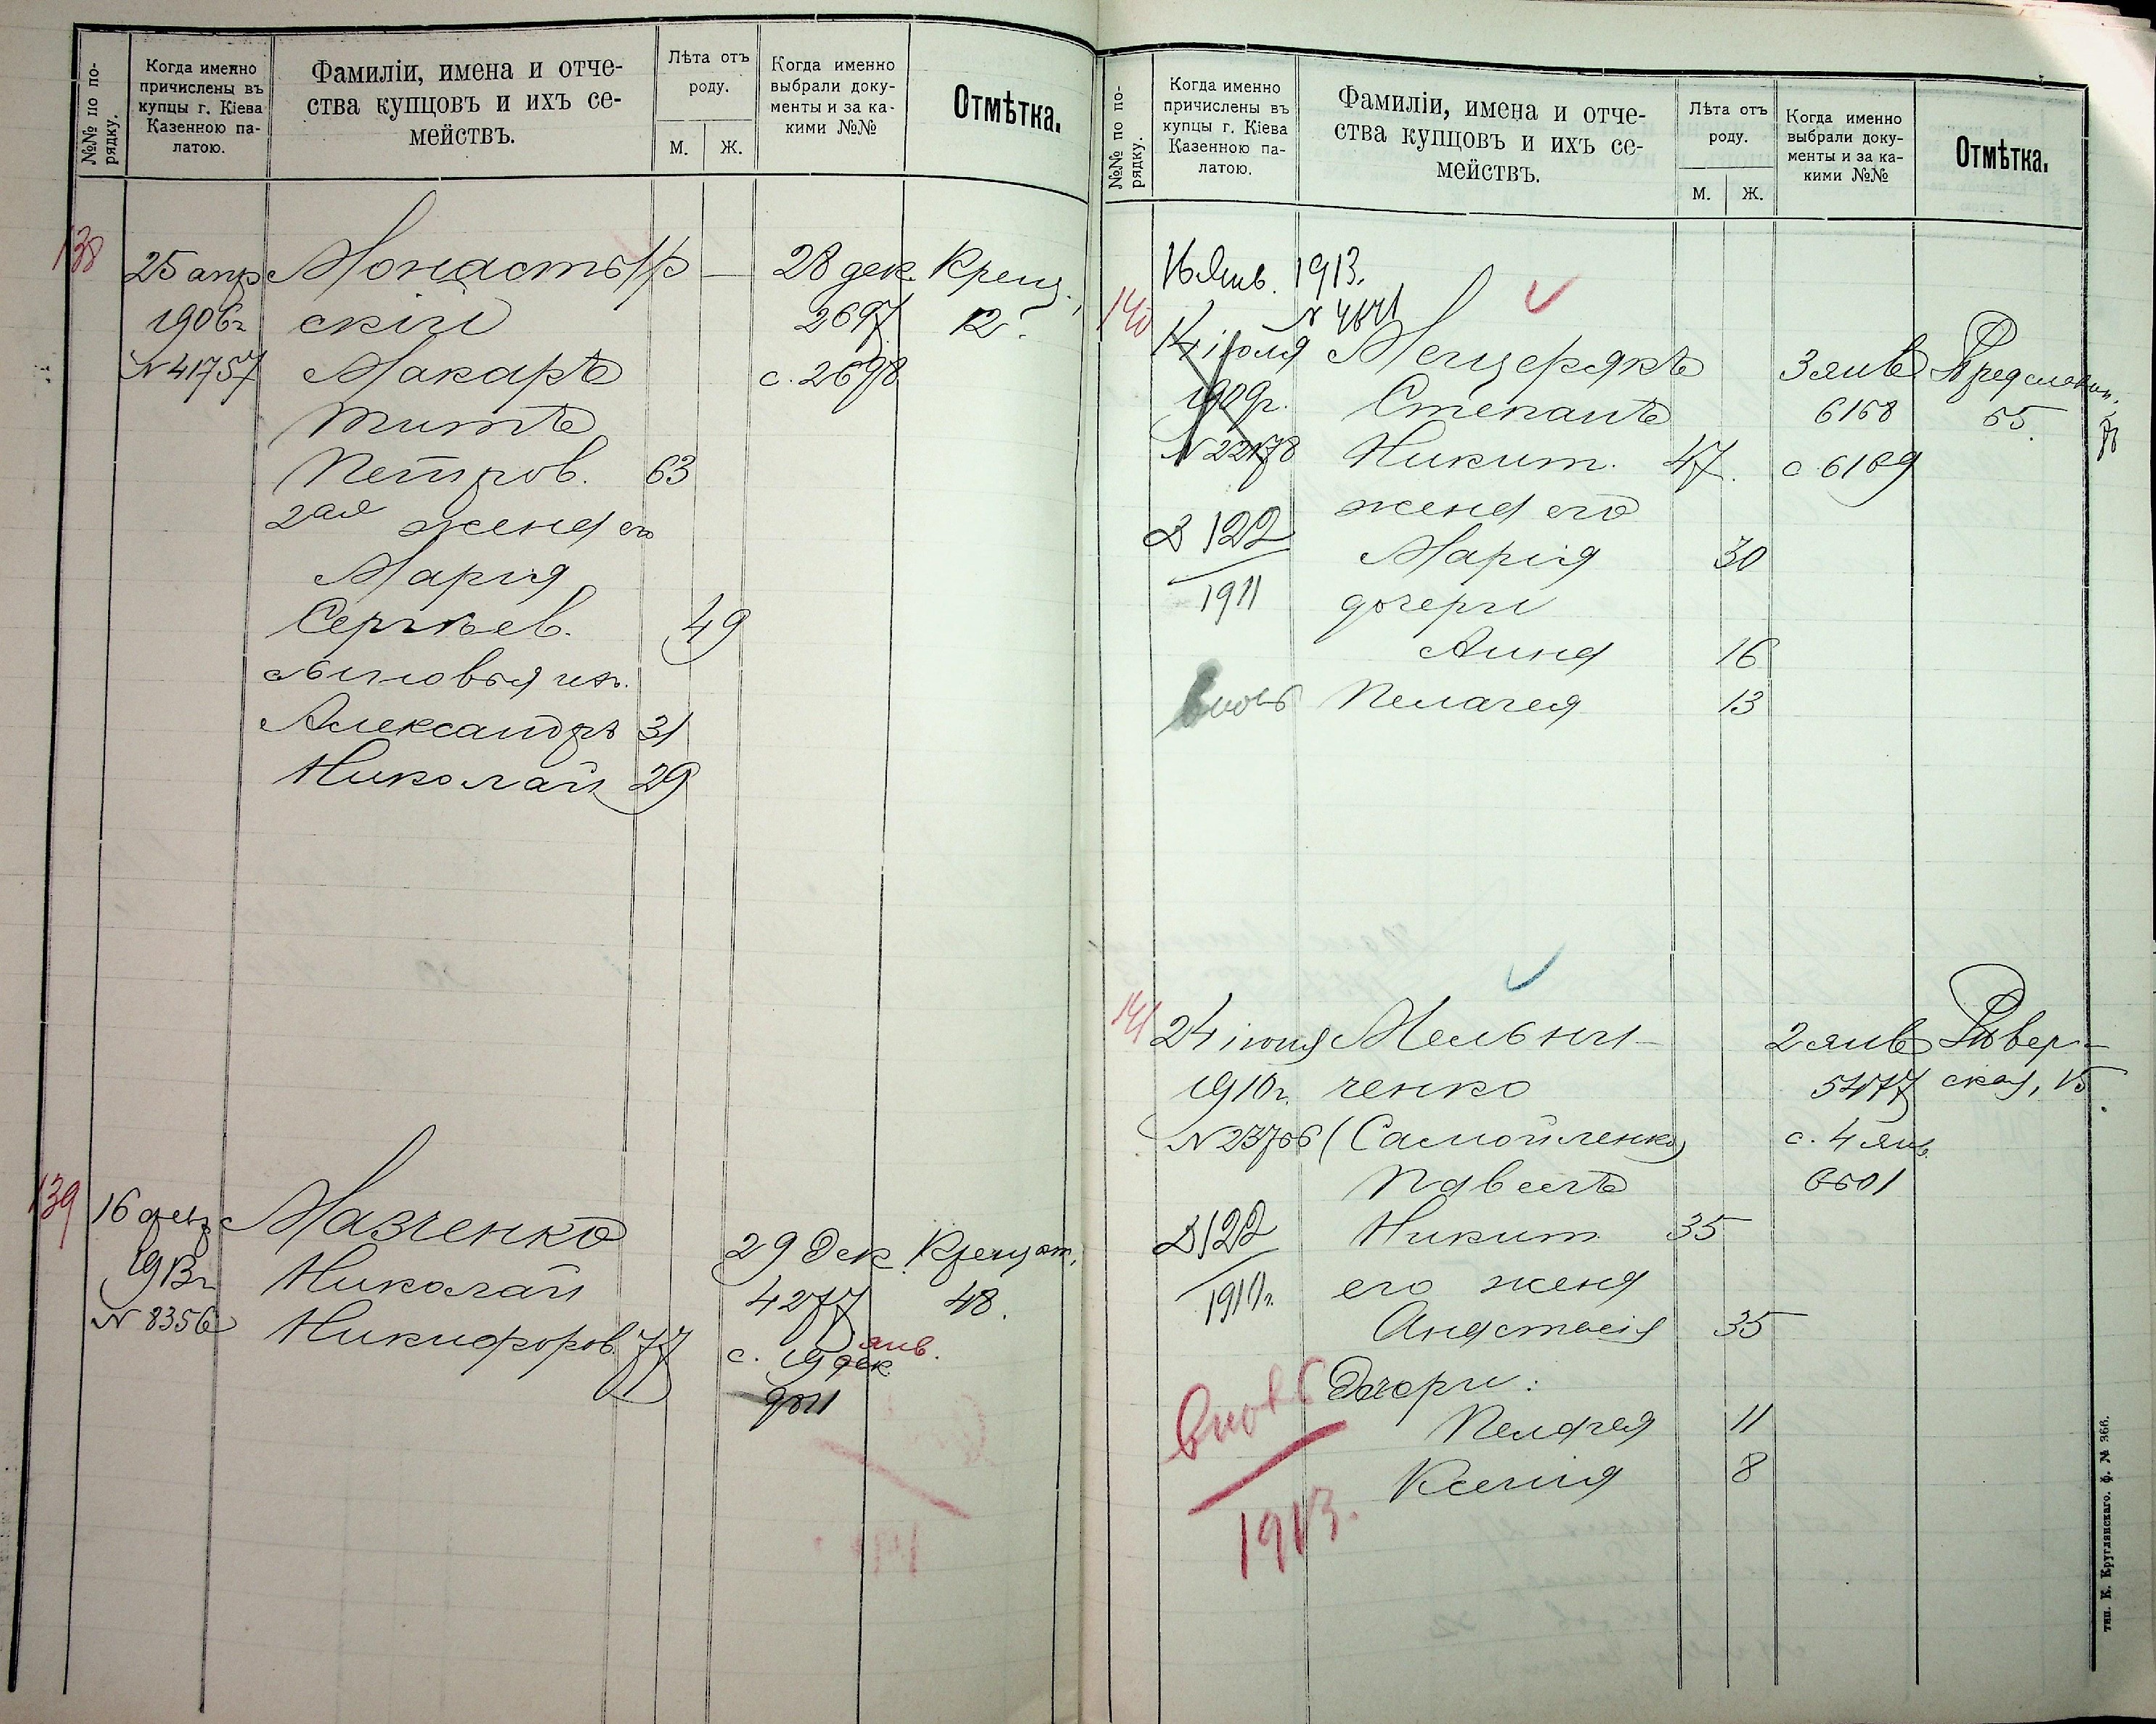 №№ по по-
рядку.
Когда именно
причислены въ
купцы г. Кіева
Казенною па-
латою.
Фамиліи, имена и отче-
ства купцовъ и ихъ се-
мействъ.
Лѣта отъ
роду.
М.
Ж.
Когда именно
выбрали доку-
менты и за ка-
кими №№
Отмѣтка.
138
25 апр
1906г
N 41757
Монастыр-
скій
Макаръ
Титъ
Петров. 63
2ая жена его
Марія
Сергѣев. 49
сыновья их.
Александръ 31
Николай 29
28 дек.
2697
с. 2698
Крещ.
12.
139
16 февр
1913г
N 8356
Мазченко
Николай
Никифоров. 77
29 Дек.
4277
янв.
с. 19 дек
Крещат.
48.
№№ по по-
рядку.
Когда именно
причислены въ
купцы г. Кіева
Казенною па-
латою.
Фамиліи, имена и отче-
ства купцовъ и ихъ се-
мействъ.
Лѣта отъ
роду.
М.
Ж.
Когда именно
выбрали доку-
менты и за ка-
кими №№
Отмѣтка.
140
16 Янв. 1913.
N 4641
14 іюля
1909г.
N 22178
Д 122
1911
вновь
Мещерякъ
Степанъ
Никит. 47.
жена его
Марія 30
дочери
Анна 16
Пелагея 13
3 янв
6168
с. 6169
Предславин.
55.
141
24 іюня
1910г.
N 23766
Д 122
1910г.
вновь
1913.
Мельни-
ченко
(Самойленко)
Павелъ
Никит 35
его жена
Анастасія 35
Дочери:
Пелагея 11
Ксенія 8
2 янв
5477
с. 4 янв.
6601
Твер-
ская, 15
тип. К. Круглянскаго. ф. № 366.